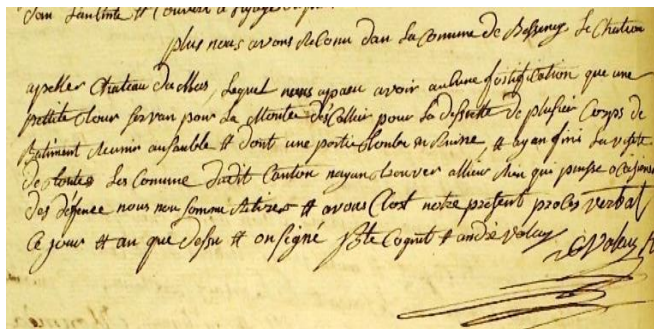 plus nous avons Reconu dan La Comune de Bessenay Le Chateau
apeller Chateau du Mas, Lequel nous a paru avoir aucune fortification que une
pettite tour servan pour La Montée des Callier pour La desserte de plusier Corps de
Batiment Reunir ansanble & dont une partie tombe en Ruine, & ayan fini La visite
de toutes Les Comune dudit Canton nayan trouver allieur Rien qui puisse
des deffence nous nou somme Retirer & avons Clost notre present proces verbal
Ce jour & an que dessu & on signé Coquet & andré